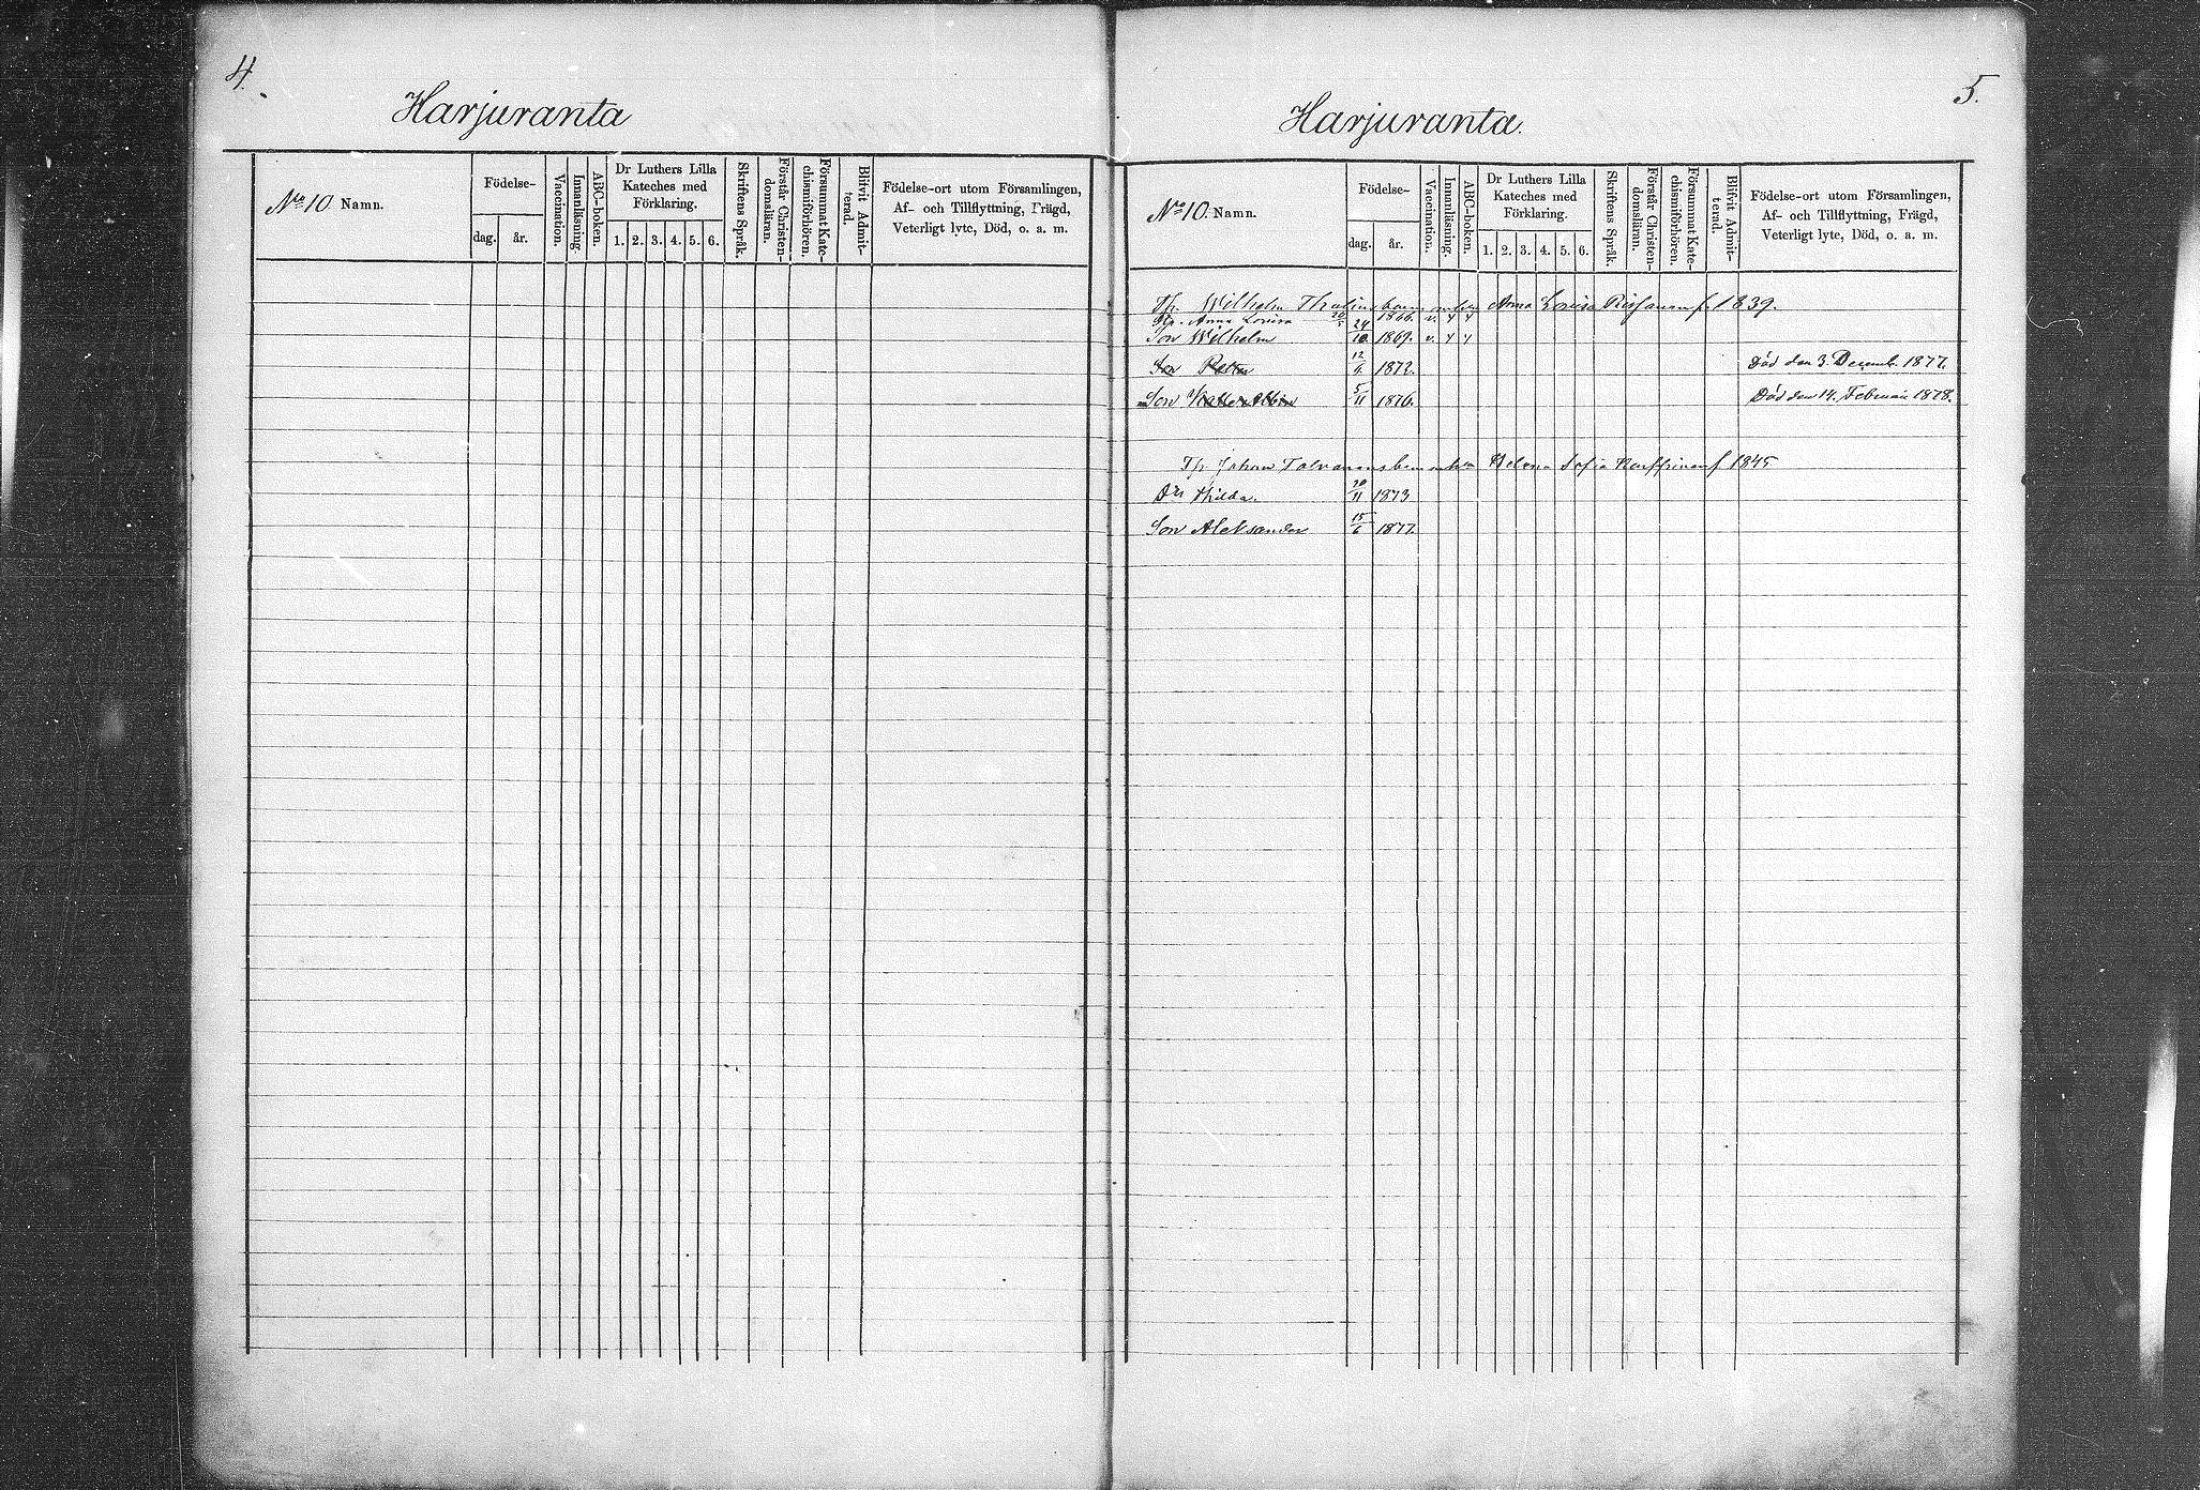 4.
Harjuranta
No 10 Namn.
Födelse-
dag.
år.
Vaccination.
Innanläsning.
ABC-boken.
Dr Luthers Lilla
Kateches med
Förklaring.
1. 2. 3. 4. 5. 6.
Skriftens Språk.
Förstår Christen-
domsläran.
Försummat Kate-
chismiförhören.
Blifvit Admit-
terad.
Födelse-ort utom Församlingen,
Af- och Tillflyttning, Frägd,
Veterligt lyte, Död, o. a. m.
5.
Harjuranta.
No 10. Namn.
Födelse-
dag.
år.
Vaccination.
Innanläsning.
ABC-boken.
Dr Luthers Lilla
Kateches med
Förklaring.
1. 2. 3. 4. 5. 6.
Skriftens Språk.
Förstår Christen-
domsläran.
Försummat Kate-
chismiförhören.
Blifvit Admit-
terad.
Födelse-ort utom Församlingen,
Af- och Tillflyttning, Frägd,
Veterligt lyte, Död, o. a. m.
Wilhelm Anna Lovisa f. 1839.
Anna Lovisa 1866. v.
Son Wilhelm 24/10 1869. v.
Son Petter 12/6 1872. Död den 3 Decemb. 1877.
Son 5/11 1876. Död den 14. Februari 1878.
Johan Helena Sofia f 1845
Dr Hilda. 20/11 1873
Son Aleksander 15/6 1877.